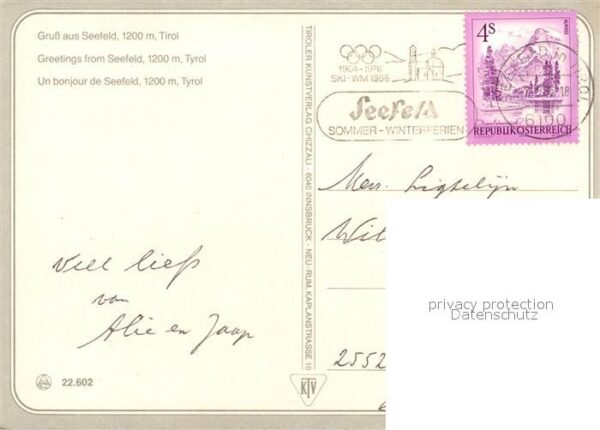 Gruß aus Seefeld, 1200 m, Tirol
Greetings from Seefeld, 1200 m, Tyrol
Un bonjour de Seefeld, 1200 m, Tyrol
1964-1976
SKI-WM 1985
Seefeld
SOMMER-WINTERFERIEN
4S
REPUBLIK ÖSTERREICH
6100
TIROLER KUNSTVERLAG CHIZZALI · 6040 INNSBRUCK · NEU-RUM, KAPLANSTRASSE 10
viell ließ
von
Alie en Jaap
Wil
2552
privacy protection
Datenschutz
22.602
KTV